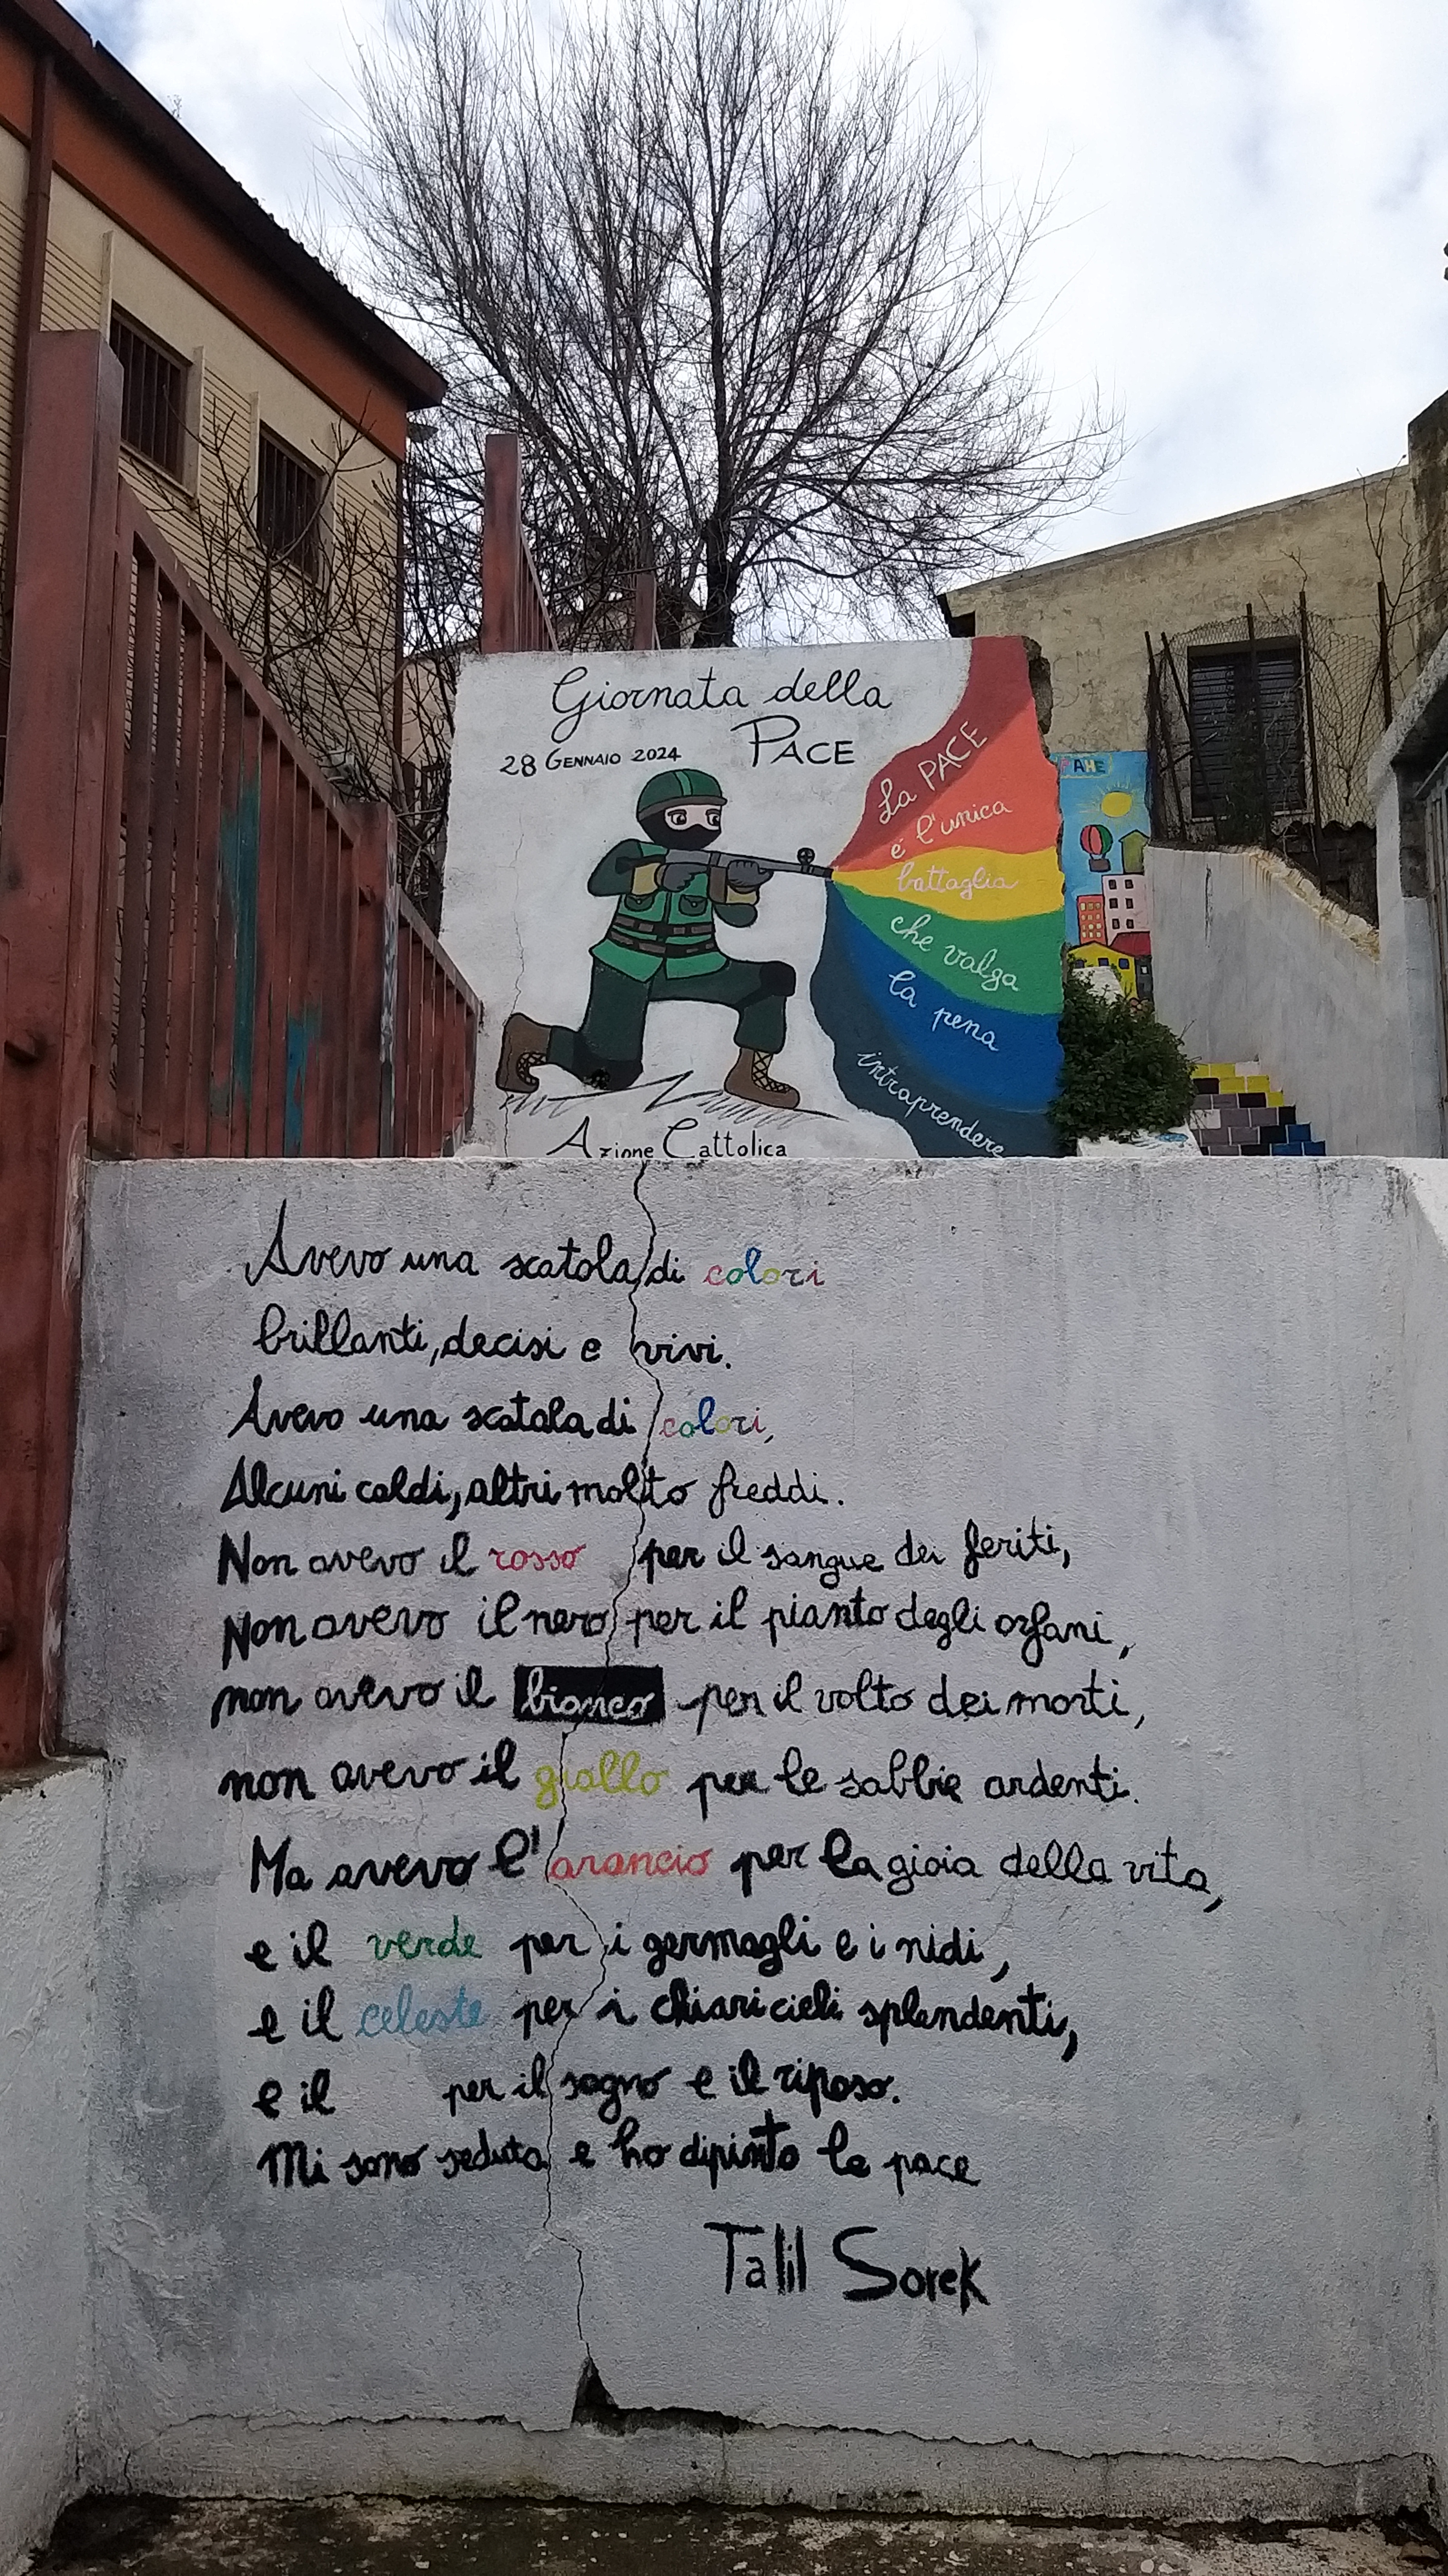 Giornata della
PACE
28 GENNAIO 2024
La PACE
é l'unica
battaglia
che valga
la pena
intraprendere
Azione Cattolica
Avevo una scatola di colori
brillanti, decisi e vivi.
Avevo una scatola di colori,
Alcuni caldi, altri molto freddi.
Non avevo il rosso per il sangue dei feriti,
Non avevo il nero per il pianto degli orfani,
non avevo il bianco per il volto dei morti,
non avevo il giallo per le sabbie ardenti.
Ma avevo l'arancio per la gioia della vita,
e il verde per i germogli e i nidi,
e il celeste per i chiari cieli splendenti,
e il per il sogno e il riposo.
Mi sono seduta e ho dipinto la pace
Talil Sorek